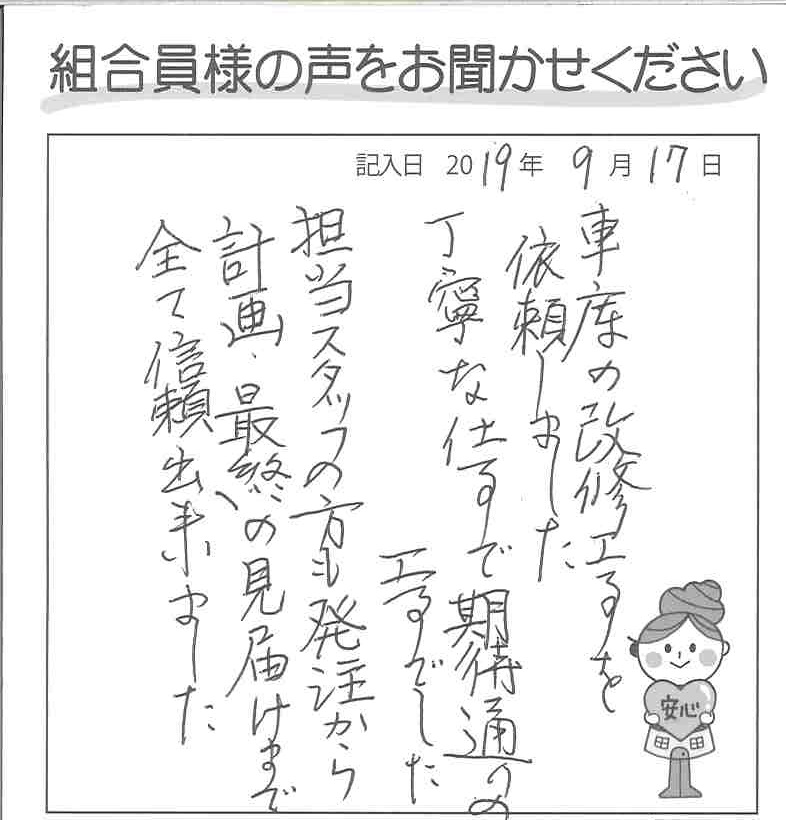 組合員様の声をお聞かせください
記入日 2019年 9月17日
車庫の改修工事を
依頼しました
丁寧な仕事で期待通りの
工事でした
担当スタッフの方も発注から
計画、最終の見届けまで
全て信頼出来ました
安心